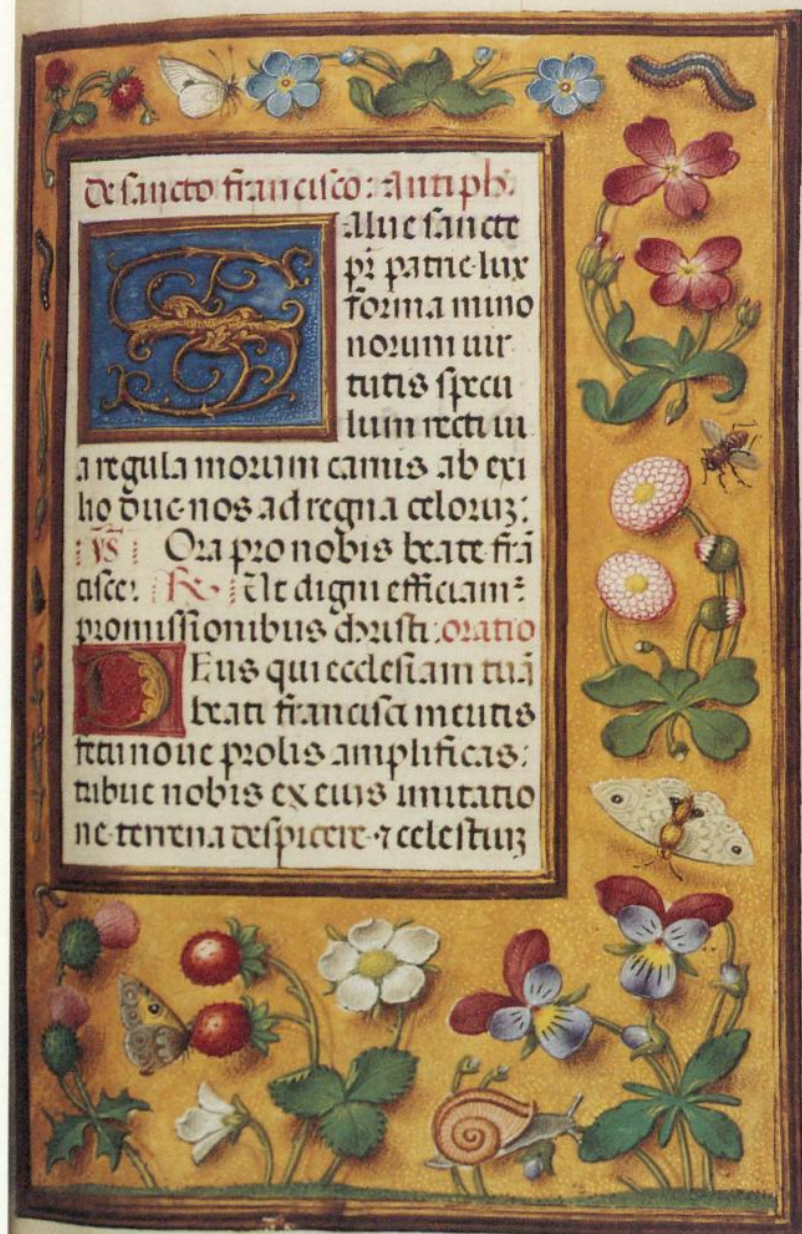 De sancto francisco: antiph.
Salue sancte
pr̄ patrie lux
forma mino
norum uir
tutis specu
lum recti ui
a regula morum carnis ab exi
lio duc nos ad regna celoruʒ:
: v̄s : Ora pro nobis beate frā
cisce: : R : Ut digni efficiam̄:
promissionibus christi: oratio
Deus qui ecclesiam tuā
beati francisci meritis
fetu noue prolis amplificas:
tribue nobis ex eius imitatio
ne terrena despicere ⁊ celestiuʒ